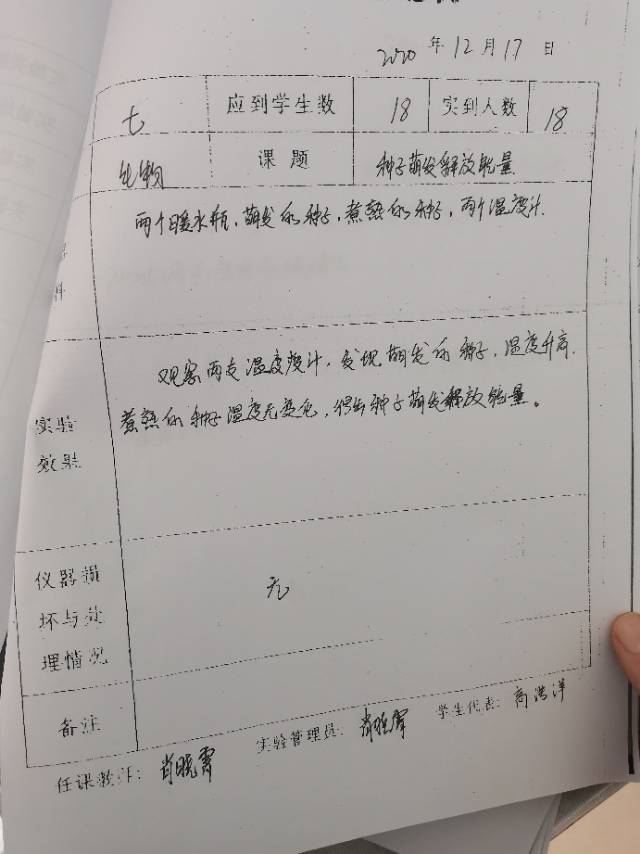 2020 年 12 月 17 日
七 应到学生数 18 实到人数 18
生物 课题 种子萌发释放能量
料 两个暖水瓶，萌发的种子，煮熟的种子，两个温度计.
观察两支温度计，发现萌发的种子，温度升高.
实验 煮熟的种子温度无变化，得出种子萌发释放能量。
效果
仪器损
坏与处 无
理情况
备注
任课教师： 肖晓霄 实验管理员： 学生代表： 高洪洋